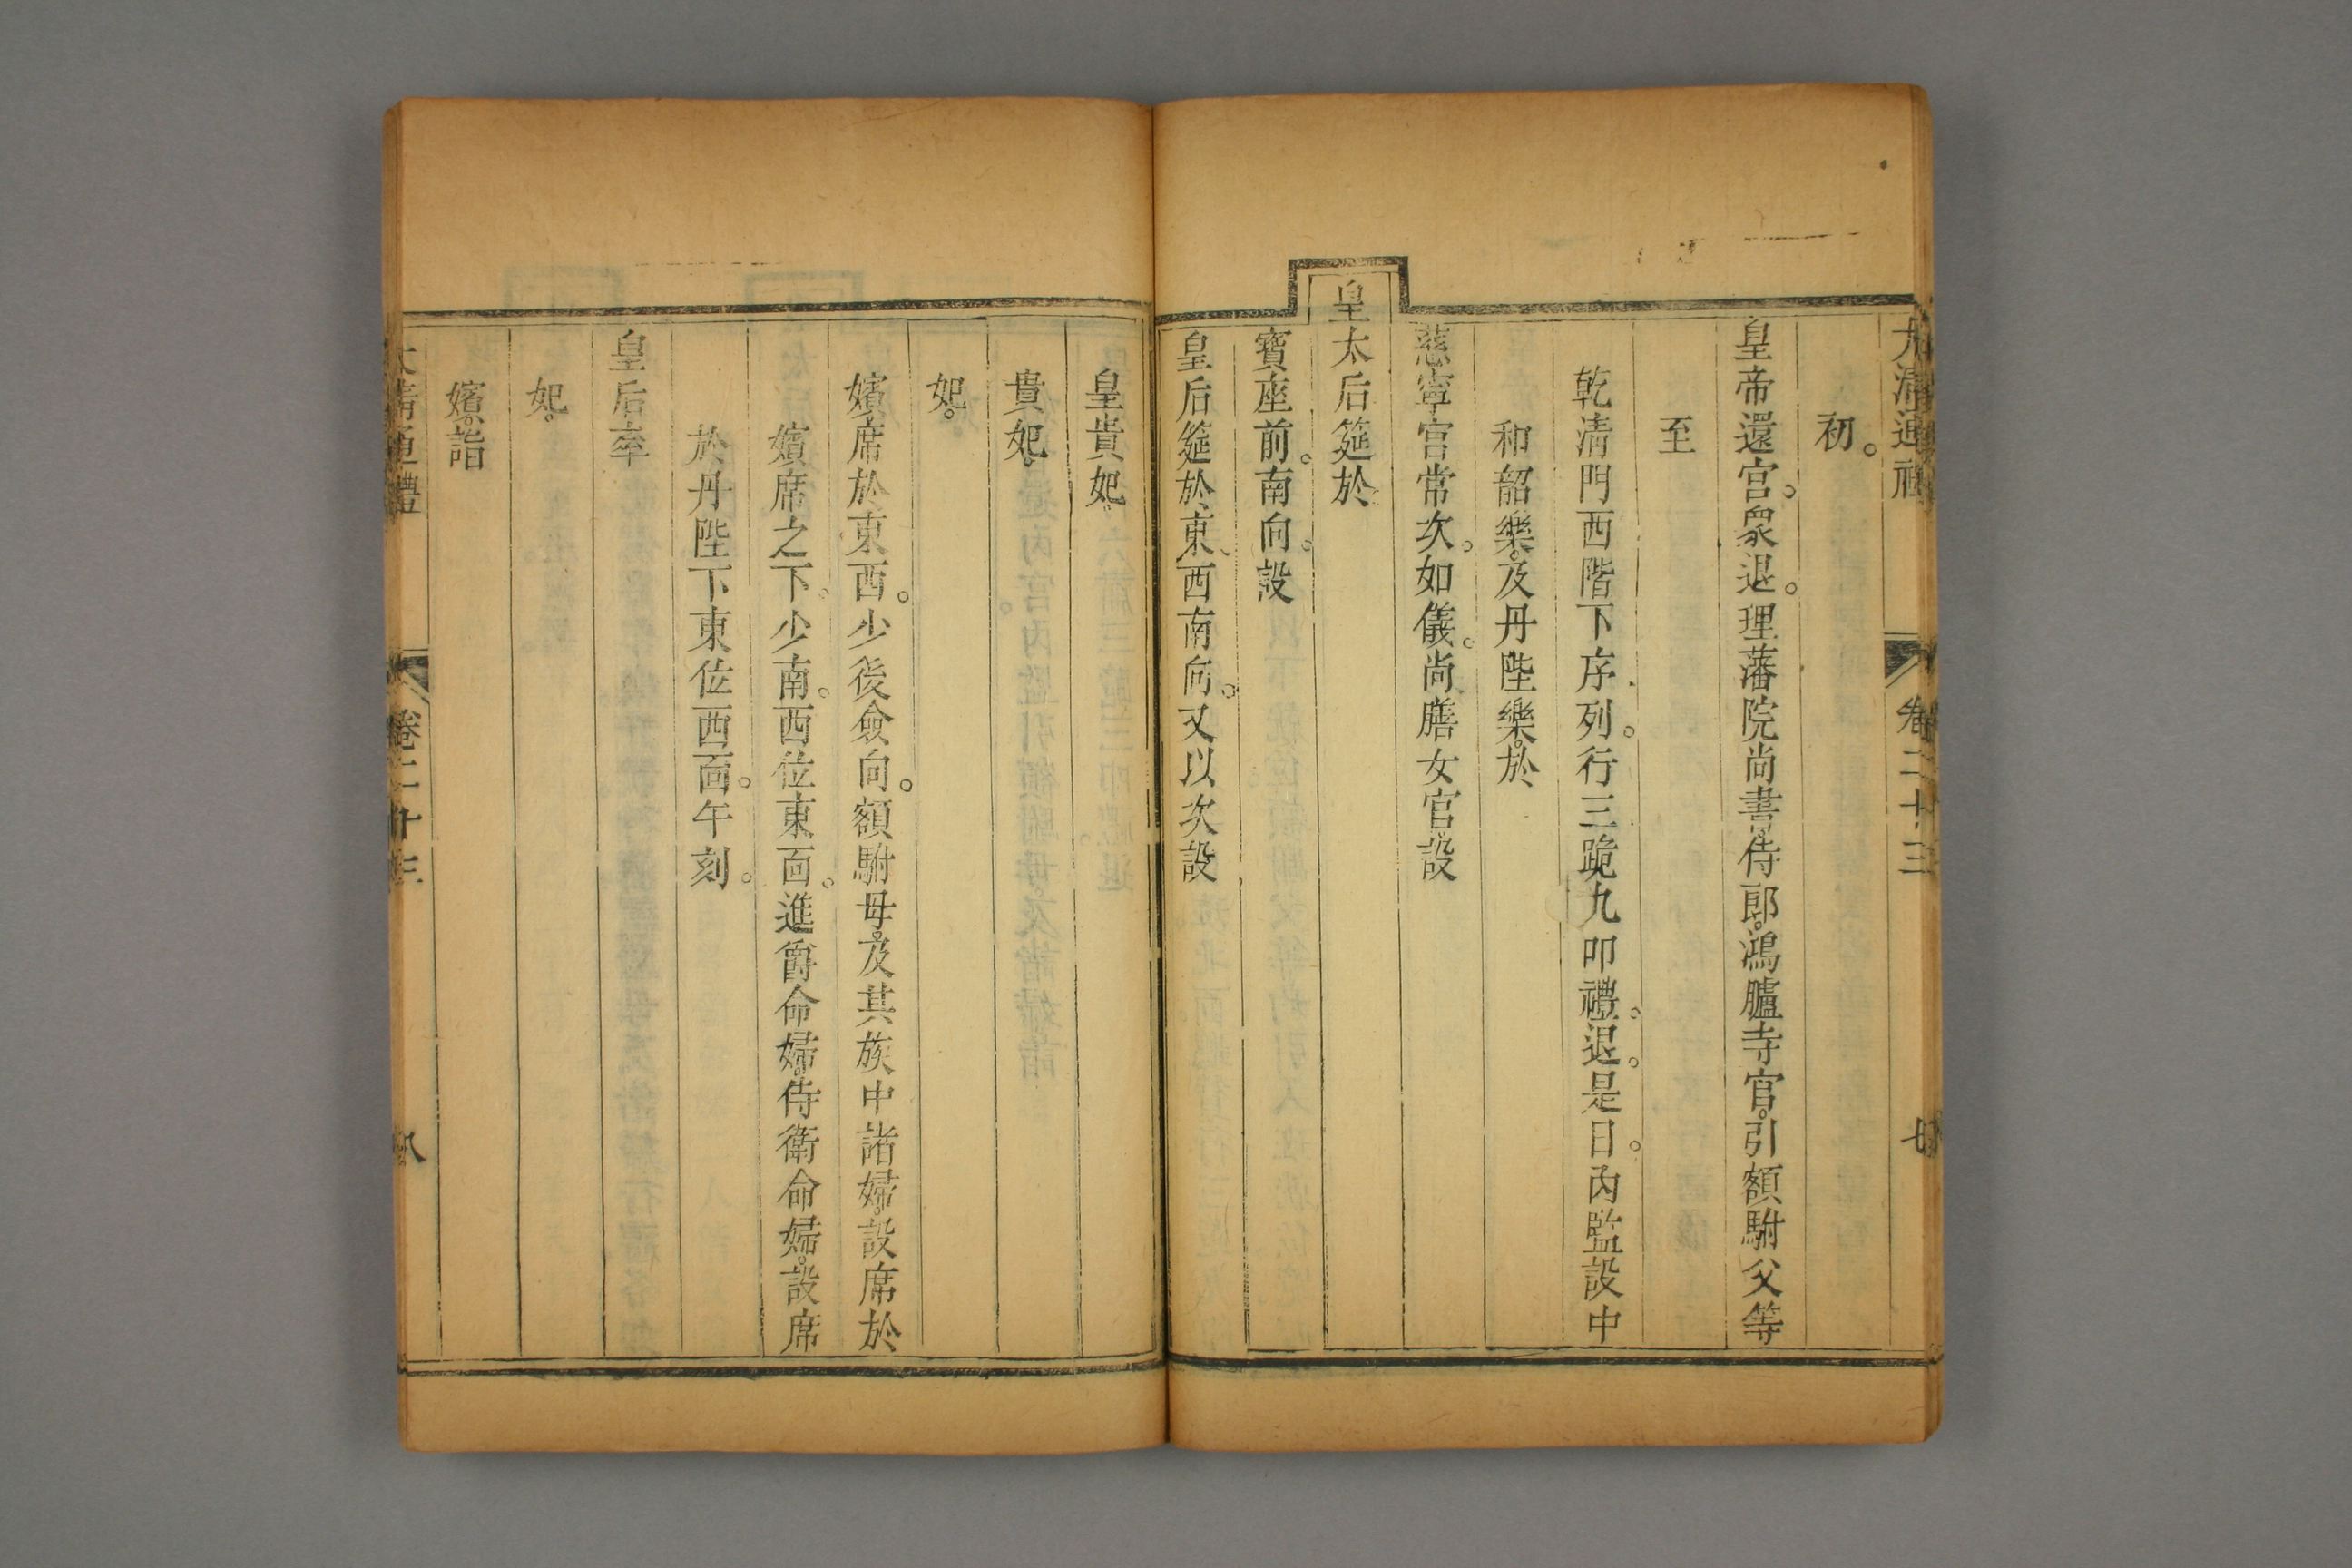 大清通禮 卷二十三 七
初。
皇帝還宮。衆退。理藩院尚書。侍郎。鴻臚寺官。引額駙父等
至
乾清門西階下序列。行三跪九叩禮。退。是日。內監設中
和韶樂。及丹陛樂。於
慈寧宮常次。如儀。尚膳女官設
皇太后筵於
寶座前。南向。設
皇后筵於東、西南向。又以次設
皇貴妃。
貴妃。
妃。
嬪席於東西。少後僉向。額駙母。及其族中諸婦。設席於
嬪席之下。少南。西位東面。進爵命婦。侍衛命婦。設席
於丹陛下東位西面。午刻。
皇后率
妃。
嬪。詣
大清通禮 卷二十三 八